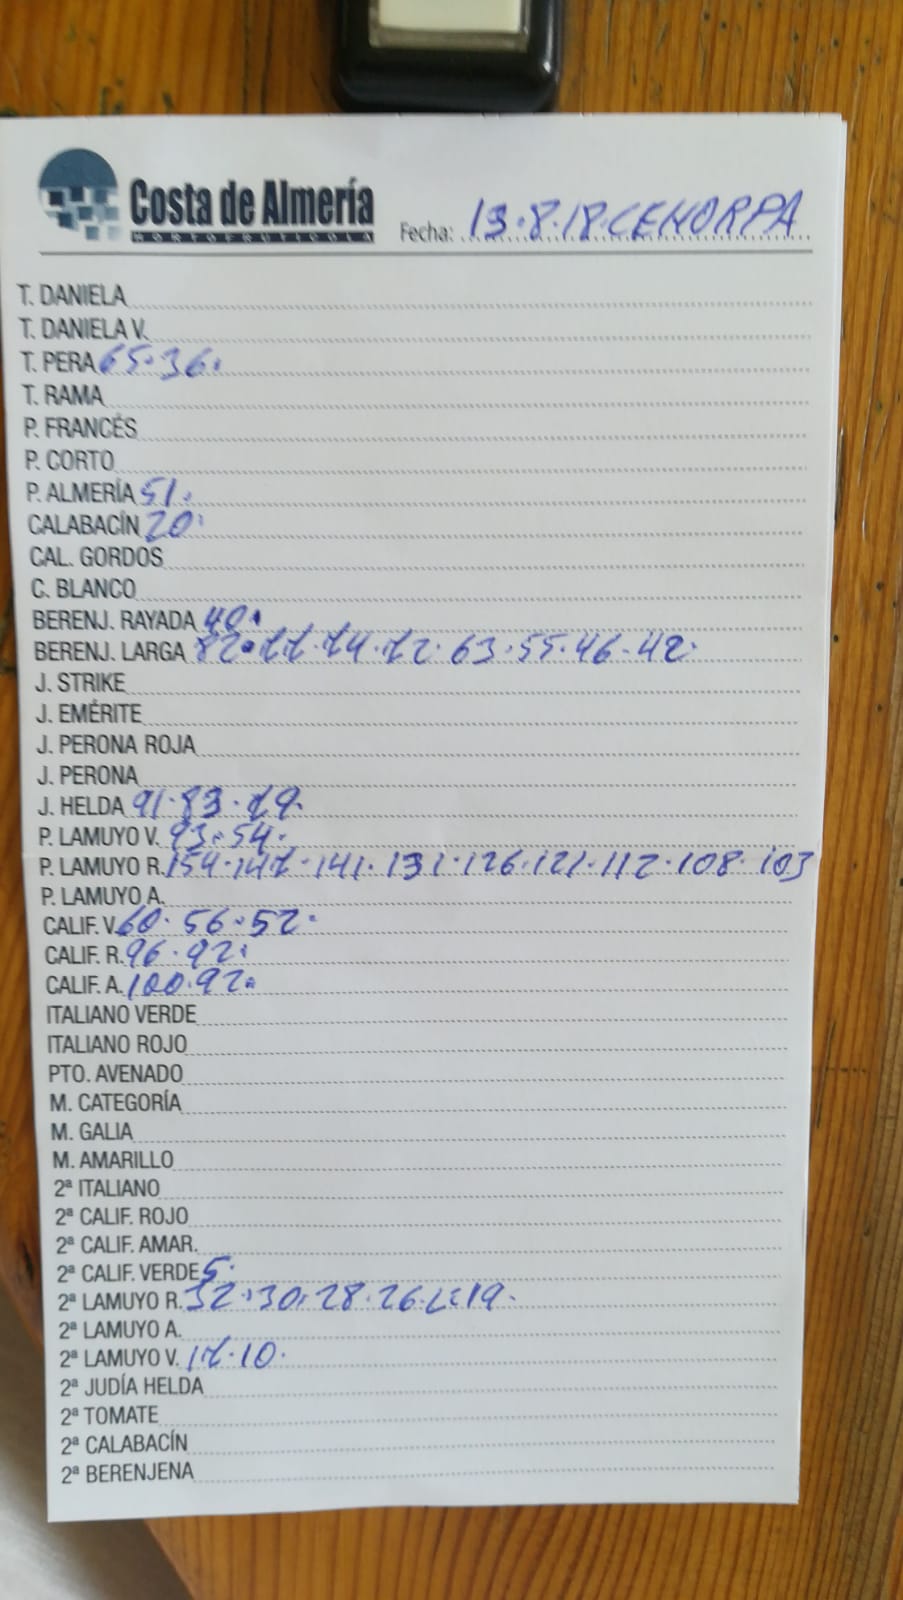 Costa de Almería
HORTOFRUTICOLA
Fecha: 13.8.18.CEHORPA
T. DANIELA
T. DANIELA V.
T. PERA 65.36.
T. RAMA
P. FRANCÉS
P. CORTO
P. ALMERÍA 51.
CALABACÍN 20.
CAL. GORDOS
C. BLANCO
BERENJ. RAYADA 40.
BERENJ. LARGA 82. 63.55.46.42.
J. STRIKE
J. EMÉRITE
J. PERONA ROJA
J. PERONA
J. HELDA 91.83.79.
P. LAMUYO V. 93.54.
P. LAMUYO R. 154.147.141.131.126.121.112.108.103
P. LAMUYO A.
CALIF. V. 60.56.52.
CALIF. R. 96.92.
CALIF. A. 100.92.
ITALIANO VERDE
ITALIANO ROJO
PTO. AVENADO
M. CATEGORÍA
M. GALIA
M. AMARILLO
2ª ITALIANO
2ª CALIF. ROJO
2ª CALIF. AMAR.
2ª CALIF. VERDE 5.
2ª LAMUYO R. 32.30.28.26. 19.
2ª LAMUYO A.
2ª LAMUYO V. 17.10.
2ª JUDÍA HELDA
2ª TOMATE
2ª CALABACÍN
2ª BERENJENA